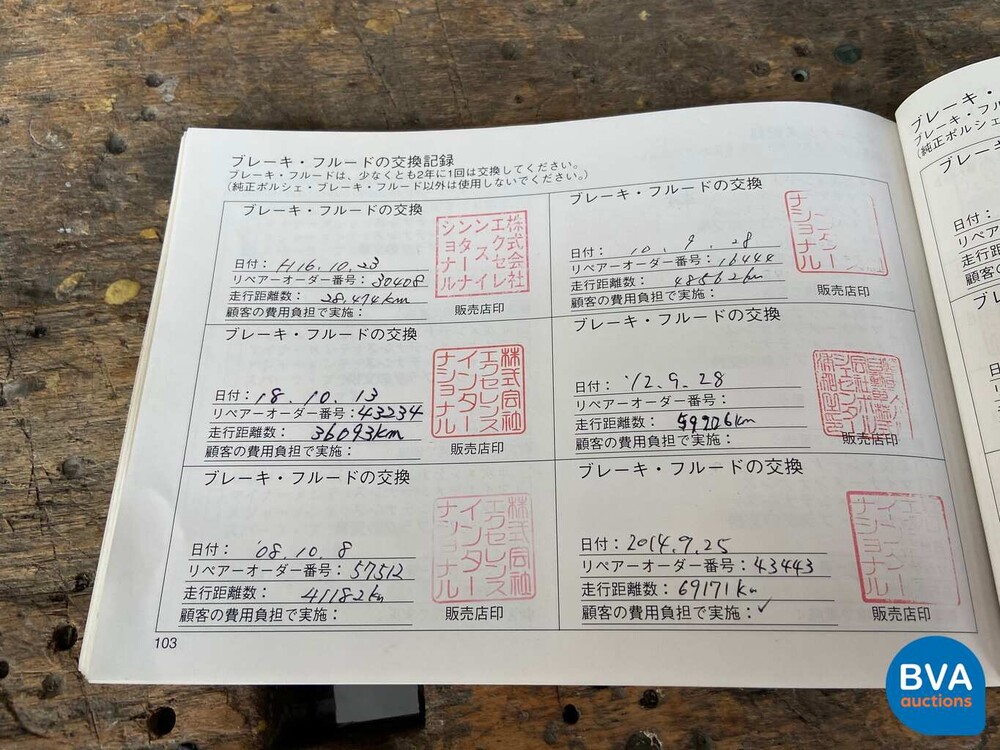 ブレーキ・フルードの交換記録
ブレーキ・フルードは、少なくとも2年に1回は交換してください。
(純正ポルシェ・ブレーキ・フルード以外は使用しないでください。)
ブレーキ・フルードの交換
日付: H16.10.23
リペアーオーダー番号: 30408
走行距離数: 28,474km
顧客の費用負担で実施:
株式会社
エクセレイ
ンスイナ
ンターナ
ショナル
販売店印
ブレーキ・フルードの交換
日付: 18.10.13
リペアーオーダー番号: 43234
走行距離数: 36093km
顧客の費用負担で実施:
株式会社
エクセレンス
インター
ナショナル
販売店印
ブレーキ・フルードの交換
日付: '08.10.8
リペアーオーダー番号: 57512
走行距離数: 41182km
顧客の費用負担で実施:
株式会社
エクセレンス
インター
ナショナル
販売店印
103
ブレーキ・フルードの交換
日付: 10.9.28
リペアーオーダー番号: 16444
走行距離数: 48562km
顧客の費用負担で実施:
ナショナル
販売店印
ブレーキ・フルードの交換
日付: '12.9.28
リペアーオーダー番号:
走行距離数: 59206km
顧客の費用負担で実施:
販売店印
ブレーキ・フルードの交換
日付: 2014.9.25
リペアーオーダー番号: 43443
走行距離数: 69171km
顧客の費用負担で実施: ✓
ナショナル
販売店印
ブレーキ・
ブレーキ・フル
(純正ポルシェ・
ブレーキ
日付:
リペア
走行距
顧客の
BVA
auctions